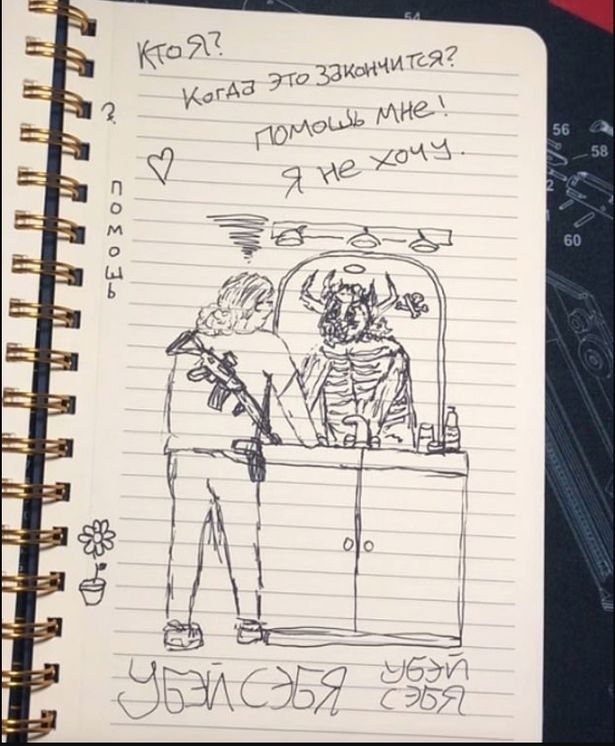 КТО Я?
Когда это закончится?
?
помошь мне!
Я не хочу.
помошь
УБЭЙ СЭБЯ
УБЭЙ
СЭБЯ
54
56
58
60